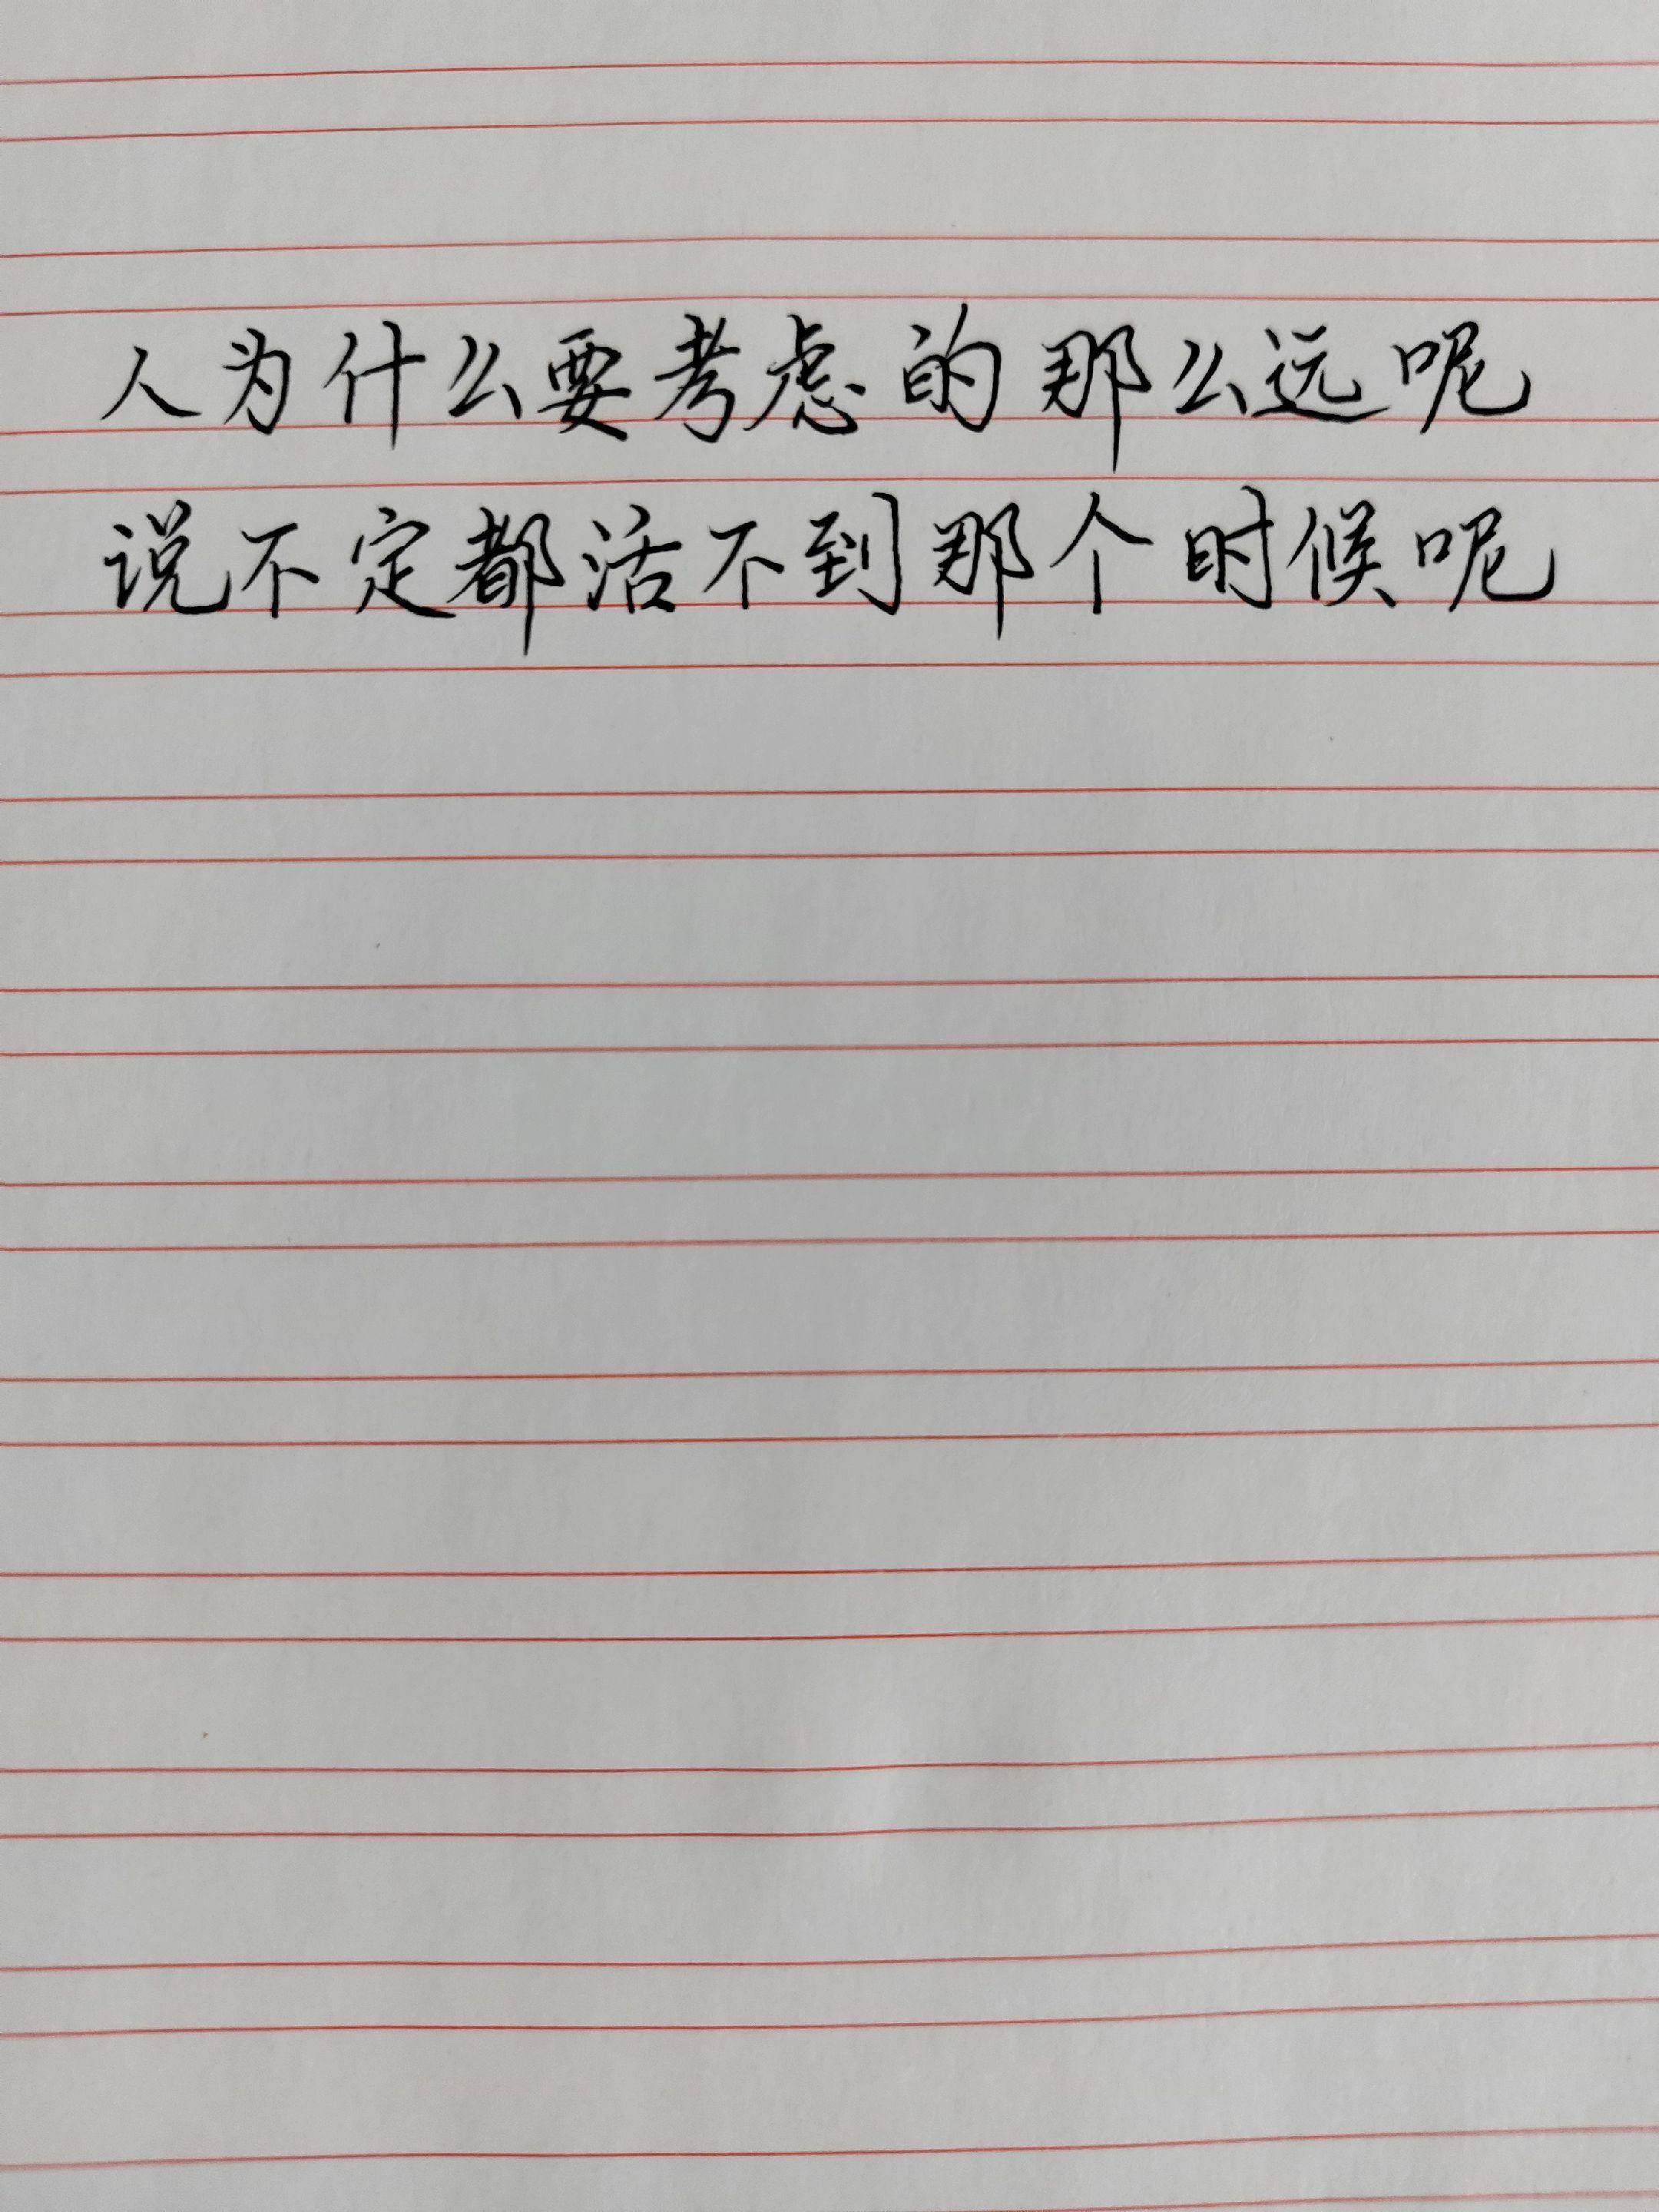 人为什么要考虑的那么远呢
说不定都活不到那个时候呢